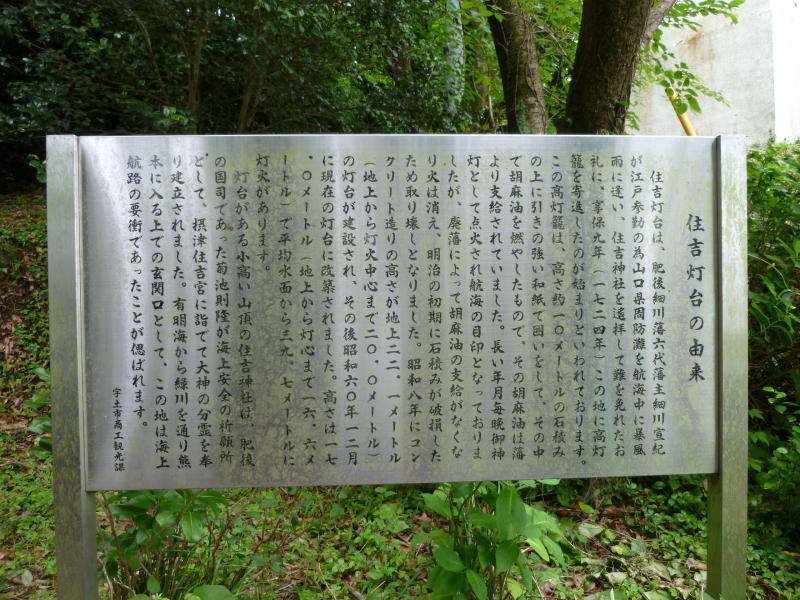 住吉灯台の由来
住吉灯台は、肥後細川藩六代藩主細川宣紀
が江戸参勤の為山口県周防灘を航海中に暴風
雨に逢い、住吉神社を遥拝して難を免れたお
礼に、享保九年（一七二四年）この地に高灯
籠を寄進したのが始まりといわれております。
この高灯籠は、高さ約一〇メートルの石積み
の上に引きの強い和紙で囲いをして、その中
で胡麻油を燃やしたもので、その胡麻油は藩
より支給されていました。長い年月毎晩御神
灯として点火され航海の目印となっておりま
したが、廃藩によって胡麻油の支給がなくな
り火は消え、明治の初期に石積みが破損した
ため取り壊しとなりました。昭和八年にコン
クリート造りの高さが地上二二．一メートル
（地上から灯火中心まで二〇．〇メートル）
の灯台が建設され、その後昭和六〇年一二月
に現在の灯台に改築されました。高さは一七
．〇メートル（地上から灯心まで一六．六メ
ートル）で平均水面から三九．七メートルに
灯火があります。
灯台がある小高い山頂の住吉神社は、肥後
の国司であった菊池則隆が海上安全の祈願所
として、摂津住吉宮に詣でて大神の分霊を奉
り建立されました。有明海から緑川を通り熊
本に入る上での玄関口として、この地は海上
航路の要衝であったことが偲ばれます。
宇土市商工観光課